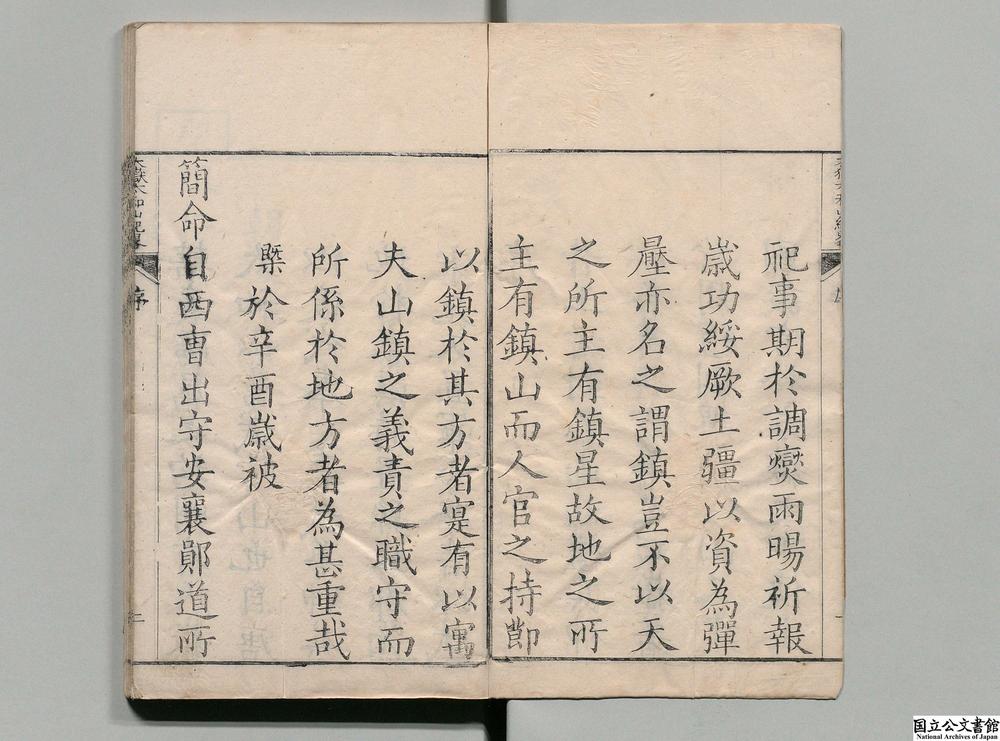 祀事期於調爕雨暘祈報
嵗功綏厥土疆以資為彈
壓亦名之謂鎮豈不以天
之所主有鎮星故地之所
主有鎮山而人官之持節
以鎮於其方者寔有以寓
夫山鎮之義責之職守而
所係於地方者為甚重哉
槩於辛酉嵗被
簡命自西曹出守安襄鄖道所
太嶽太和山紀畧
序
国立公文書館
National Archives of Japan